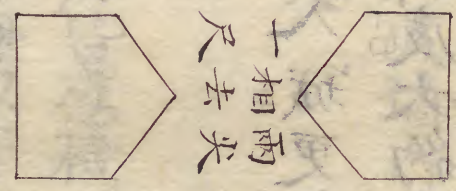 兩尖
相去
一尺